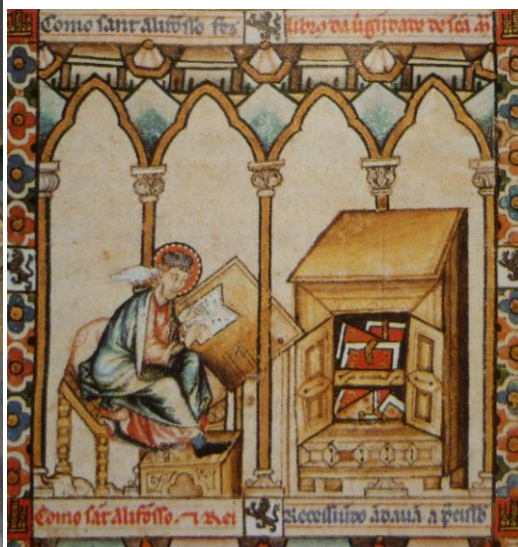 Como sant alifonsso fez libro da uirgĩidade de sc̃a mª
Como sãt alifonsso. ⁊ Rei Recessiundo ãdauã a p̃cissõ